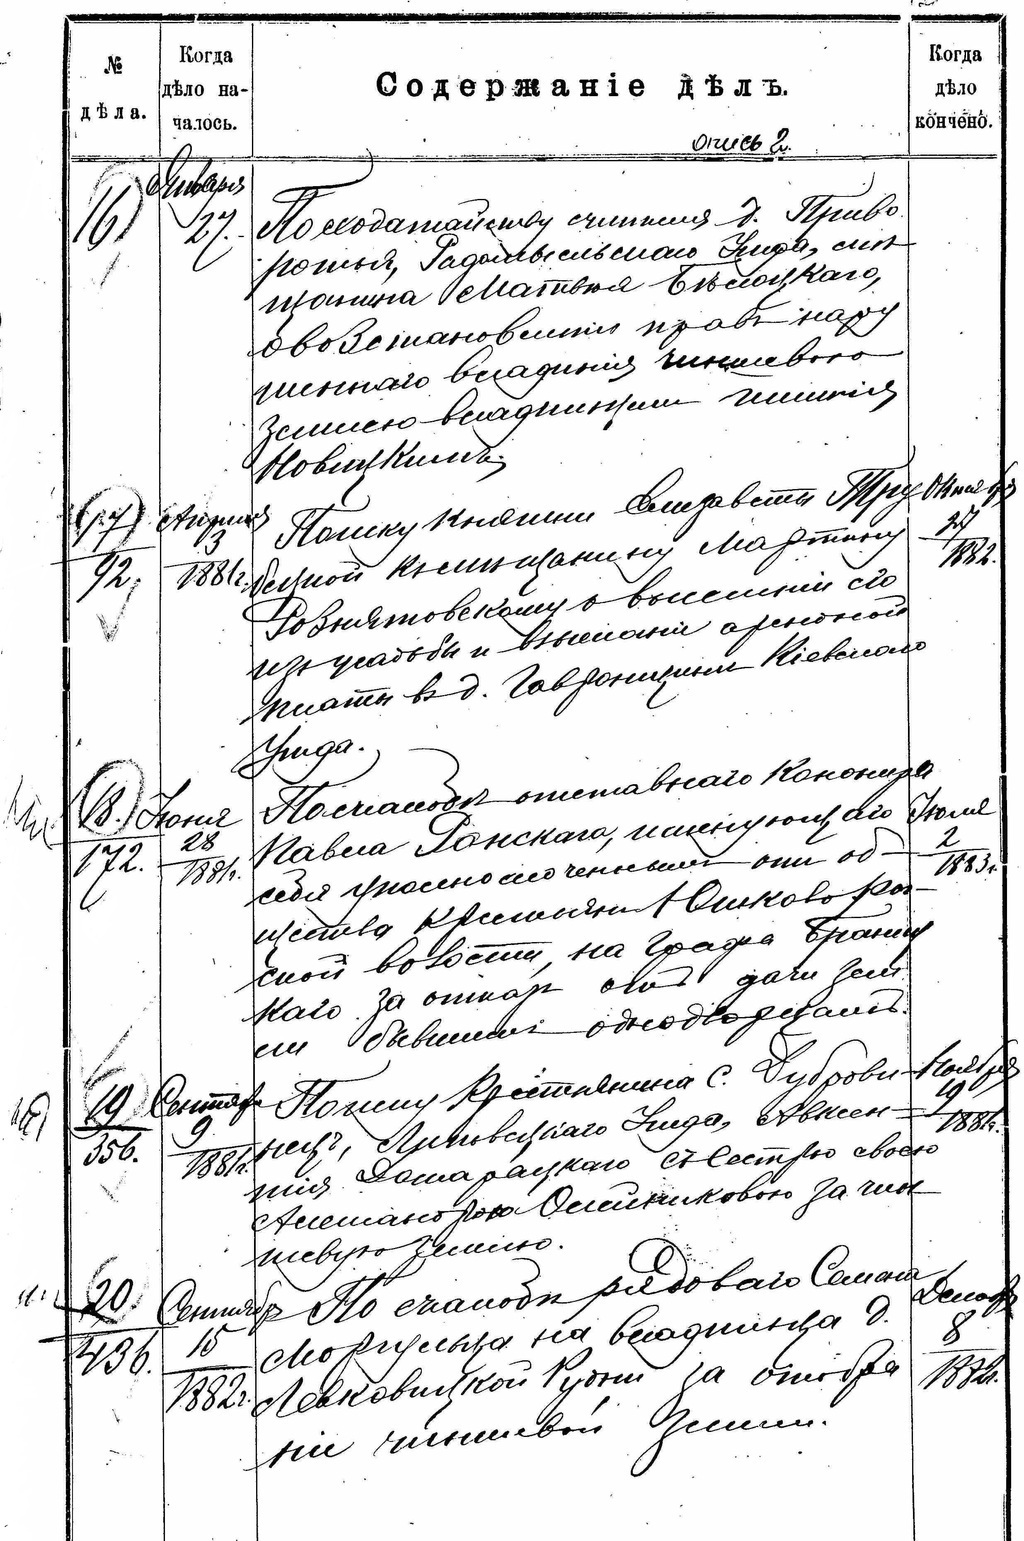 №
дѣла.
Когда
дѣло на-
чалось.
Содержаніе дѣлъ.
Когда
дѣло
кончено.
опись 2.
16
Января
27.
По ходатайству д. Приво
ротья, Радомысльскаго Уѣзда, мѣ
щанина Матвѣя Бѣлецкаго,
о возстановленіи правъ нару
шеннаго владѣнія чиншевою
землею владѣльцемъ имѣнія
Новицкимъ.
17
92.
Апрѣля
3
1881г.
По иску Княгини Елизаветы Тру
бецкой къ мѣщанину Мартину
Рознятовскому о выселеніи его
изъ усадьбы и взысканіи арендной
платы въ д. Гавронщинѣ Кіевскаго
Уѣзда.
Октября
27
1882.
18.
172.
Іюня
28
1881г.
По жалобѣ отставнаго Канонира
Павла Ранскаго, именующаго
себя уполномоченнымъ отъ об-
щества крестьянъ Юшково рог-
ской волости, на Графа Браниц
каго за отнят дачи зем
ли бывшимъ однодворцамъ.
Іюля
2
1883г.
19
356.
Сентября
9
1881г.
По иску Крестьянина с. Дуброви-
нецъ, Липовецкаго Уѣзда, Авксен-
тія съ сестрою своею
Александрою Олейниковою за чин
шевую землю.
Ноября
19
1881г.
20
436.
Сентября
15
1882г.
По жалобѣ рядоваго Семена
на владѣльца д.
Левковицкой Рудни за отобра
ніе чиншевой земли.
Декабря
8
1882г.